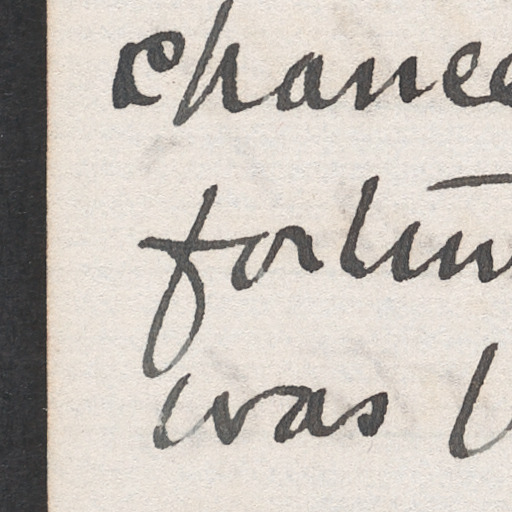 chance
fortun
was